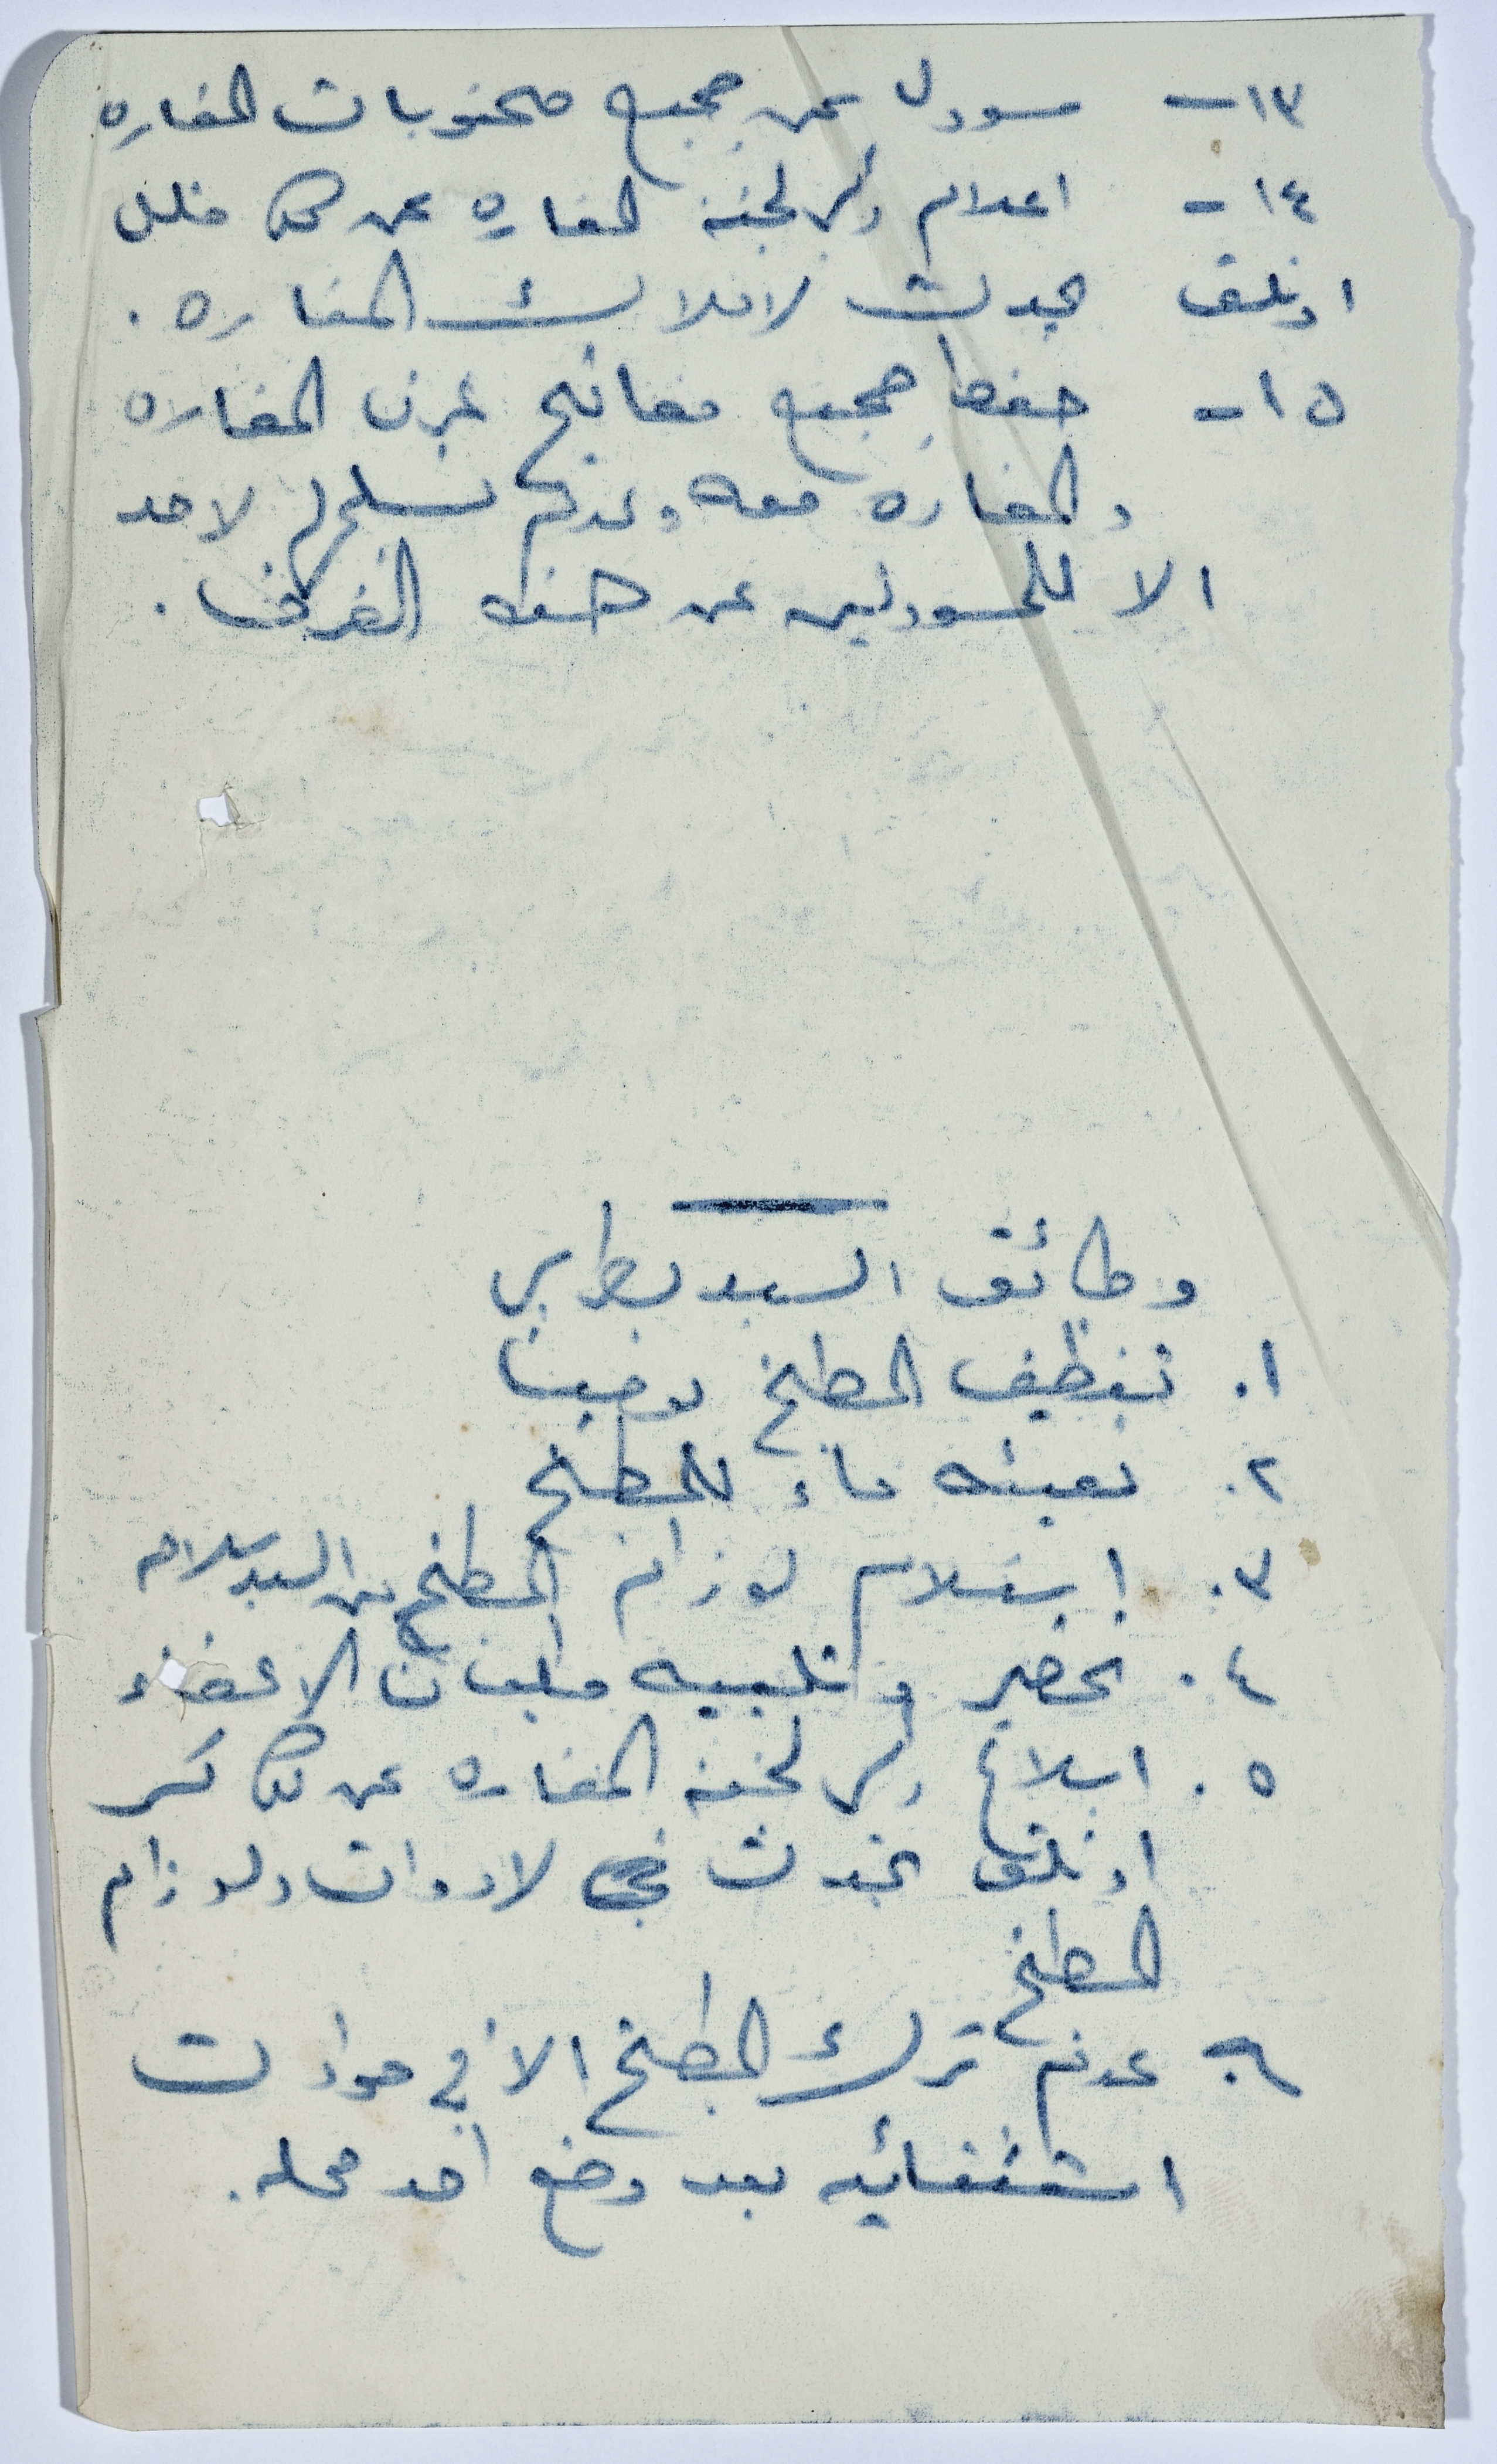 ١٣- مسوول عن جميع محتويات المغاره
١٤- اعلام رئيس لجنة المغاره عن كل خلل
او تلف يحدث لاملاك المغاره .
١٥- حفظ جميع مفاتيح غرف المغاره
والمغاره معه وعدم تسليمها لاحد
الا للمسوولين عن هذه الغرف .
وظائف السيد بطرس
١. تنظيف المطبخ يوميا
٢. تعبئه ماء للمطبخ
٣. إستلام لوزام المطبخ من السيد سلامه
٤. تحضير وتلبيه طلبات الاعضاء
٥. ابلاغ رئيس لجنة المغاره عن كل كسر
او تلف يحدث في لادوات ولوزام
المطبخ
٦. عدم ترك المطبخ الا في حوادث
استثنائيه بعد وضع احد محله .